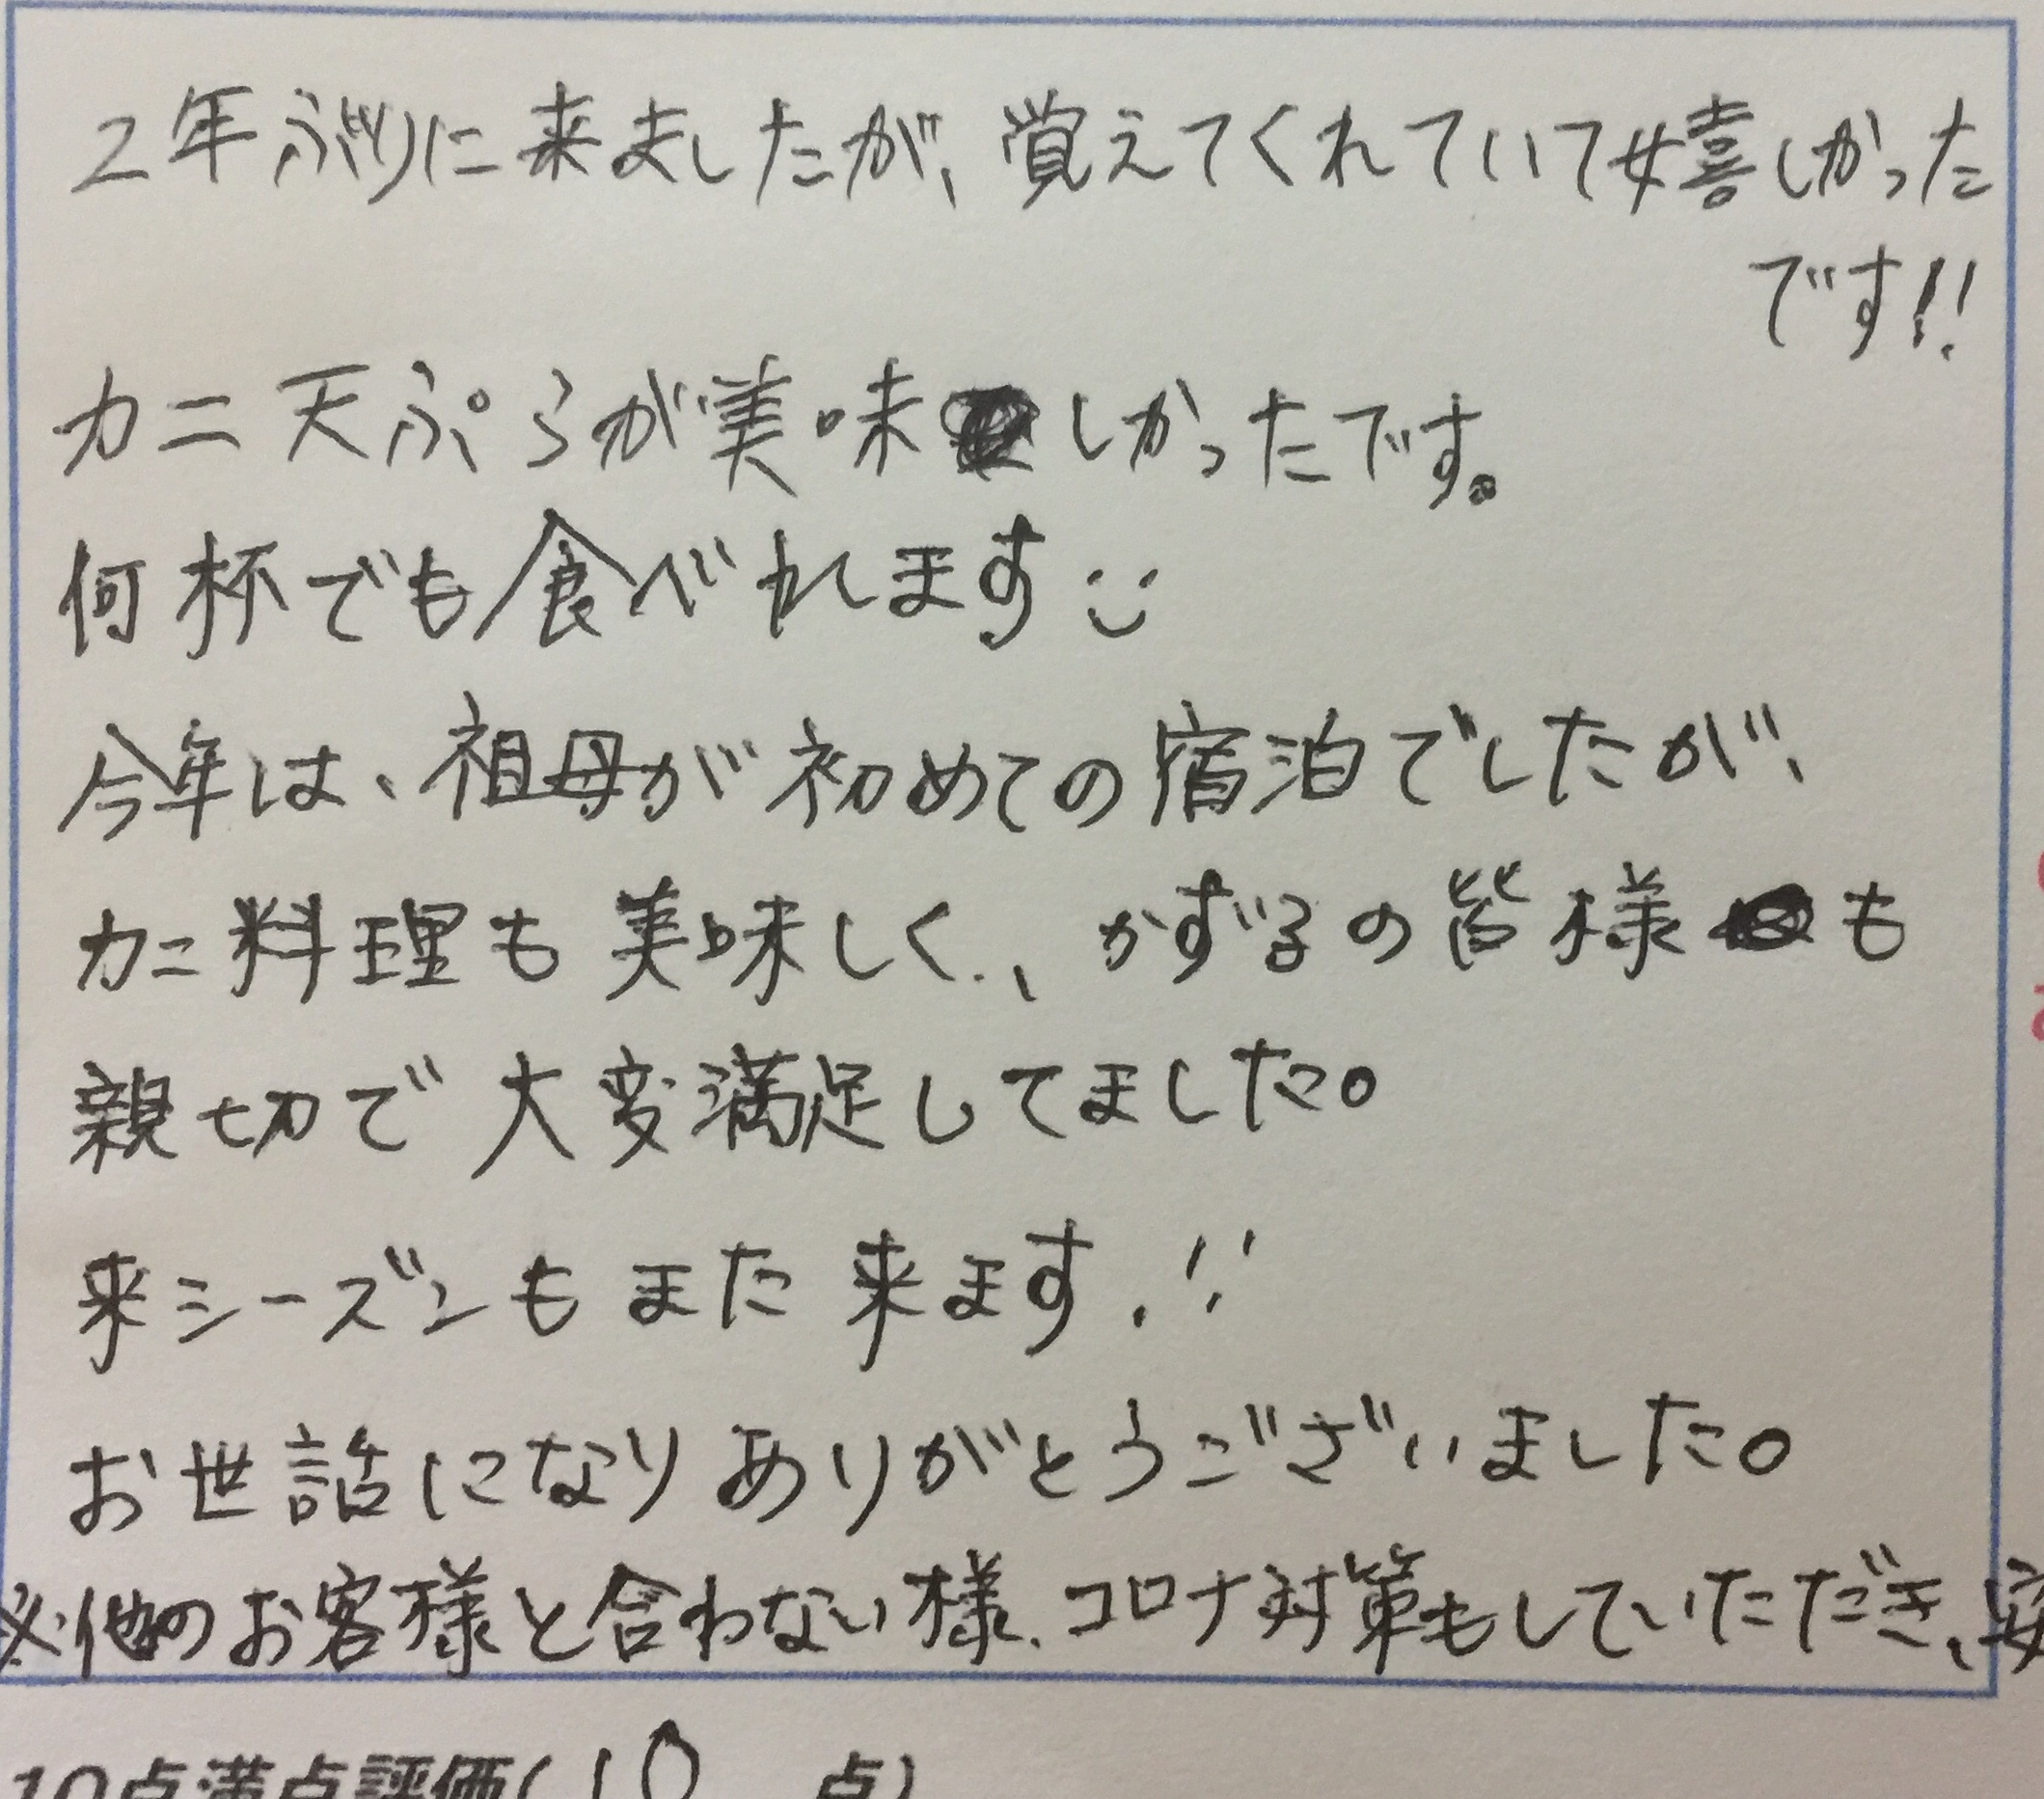 2年ぶりに来ましたが、覚えてくれていて嬉しかった
です!!
カニ天ぷらが美味しかったです。
何杯でも食べれます
今年は、祖母が初めての宿泊でしたが、
カニ料理も美味しく、かずるの皆様も
親切で大変満足してました。
来シーズンもまた来ます!!
お世話になりありがとうございました。
※他のお客様と合わない様、コロナ対策もしていただき、安
10点満点評価(10 点)